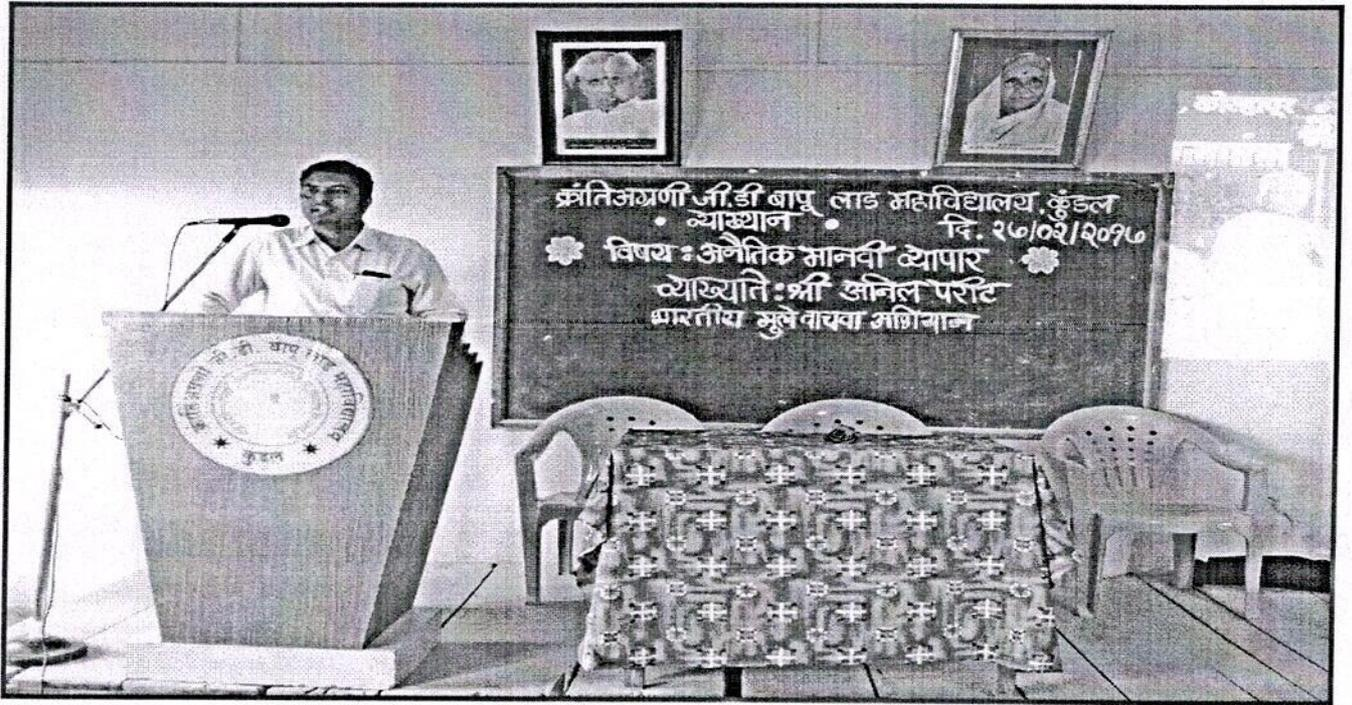 क्रांतिअग्रणी जी.डी बापू लाड महाविद्यालय, कुंडल
• व्याख्यान •
दि. २७/०२/२०१७
विषय : अनैतिक मानवी व्यापार
व्याख्याते : श्री अनिल परीट
भारतीय मुले वाचवा अभियान
क्रांतिअग्रणी जी. डी. बापू लाड महाविद्यालय
कुंडल